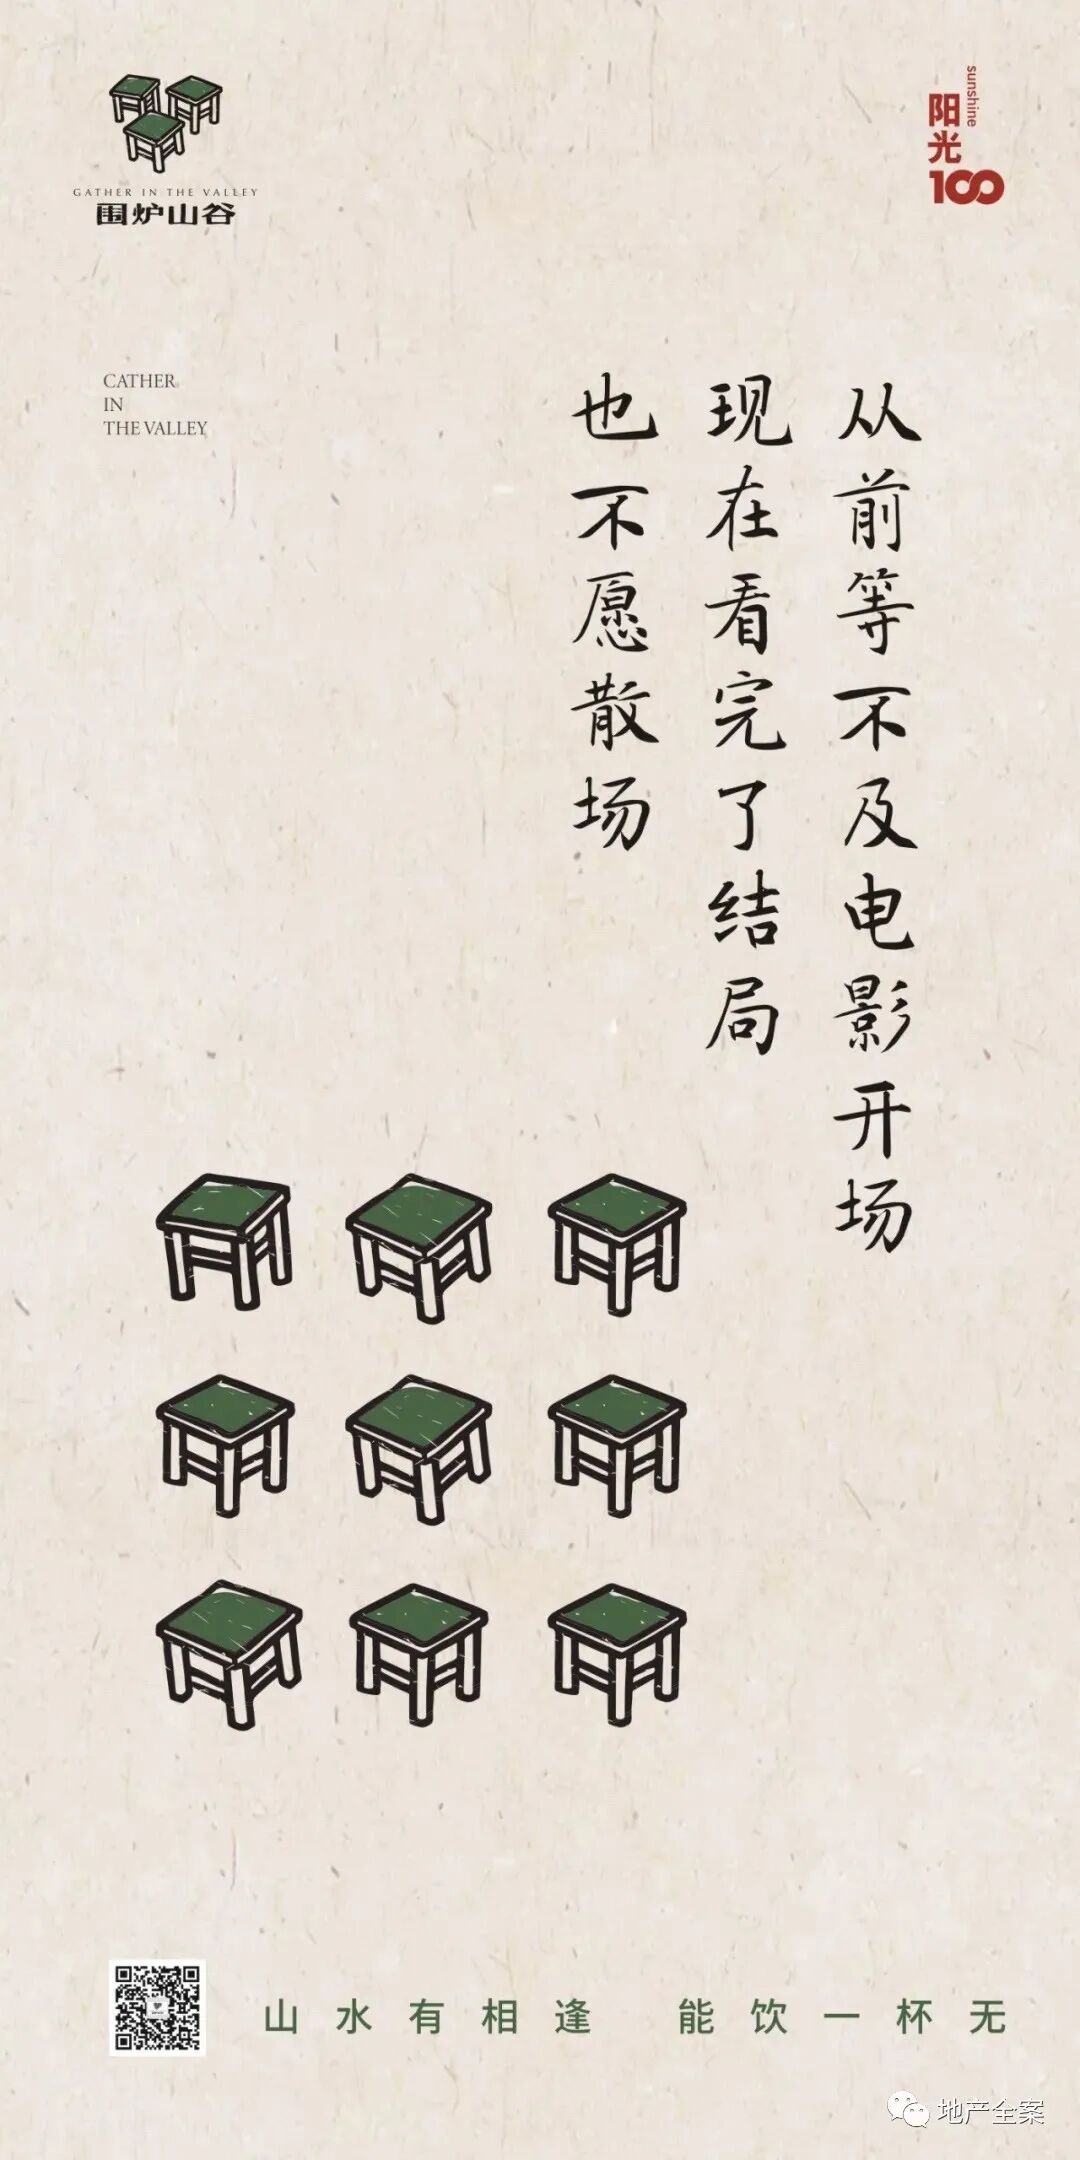 GATHER IN THE VALLEY
围炉山谷
sunshine
阳光
100
CATHER
IN
THE VALLEY
从前等不及电影开场
现在看完了结局
也不愿散场
山水有相逢 能饮一杯无
地产全案